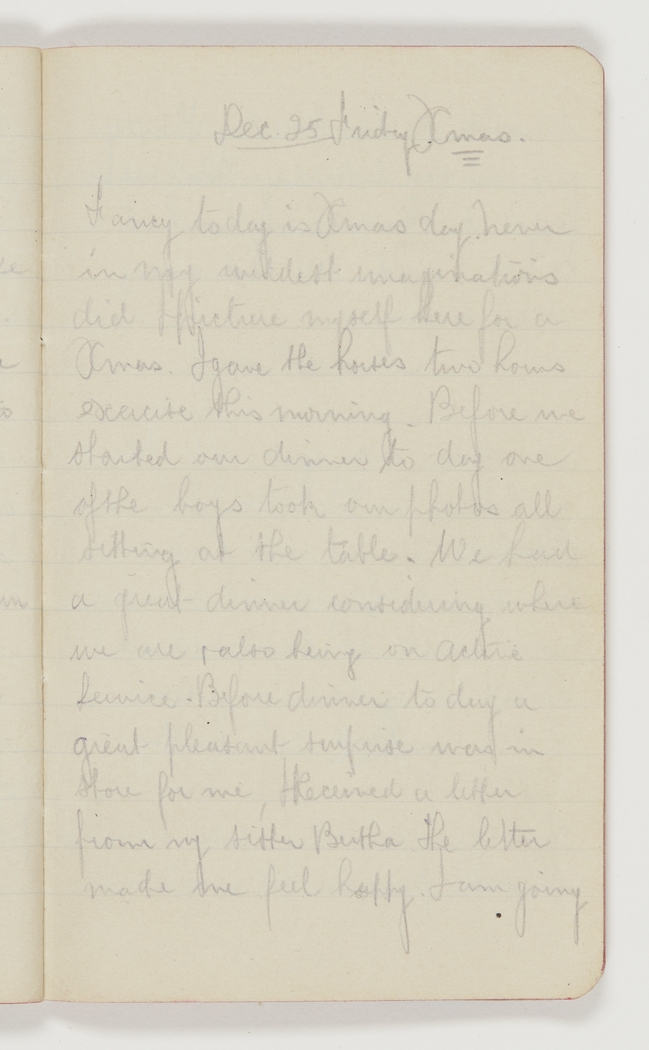 Dec. 25 Friday Xmas.
Fancy to day is Xmas day. never
in my wildest imaginations
did I picture myself here for a
Xmas. I gave the horses two hours
excercise this morning. Before we
started our dinner to day one
of the boys took our photos all
sitting at the table. We had
a great dinner considering where
we are & also being on active
Service. Before dinner to day a
great pleasant surprise was in
store for me, I received a letter
from my sister Bertha the letter
made me feel happy. I am going